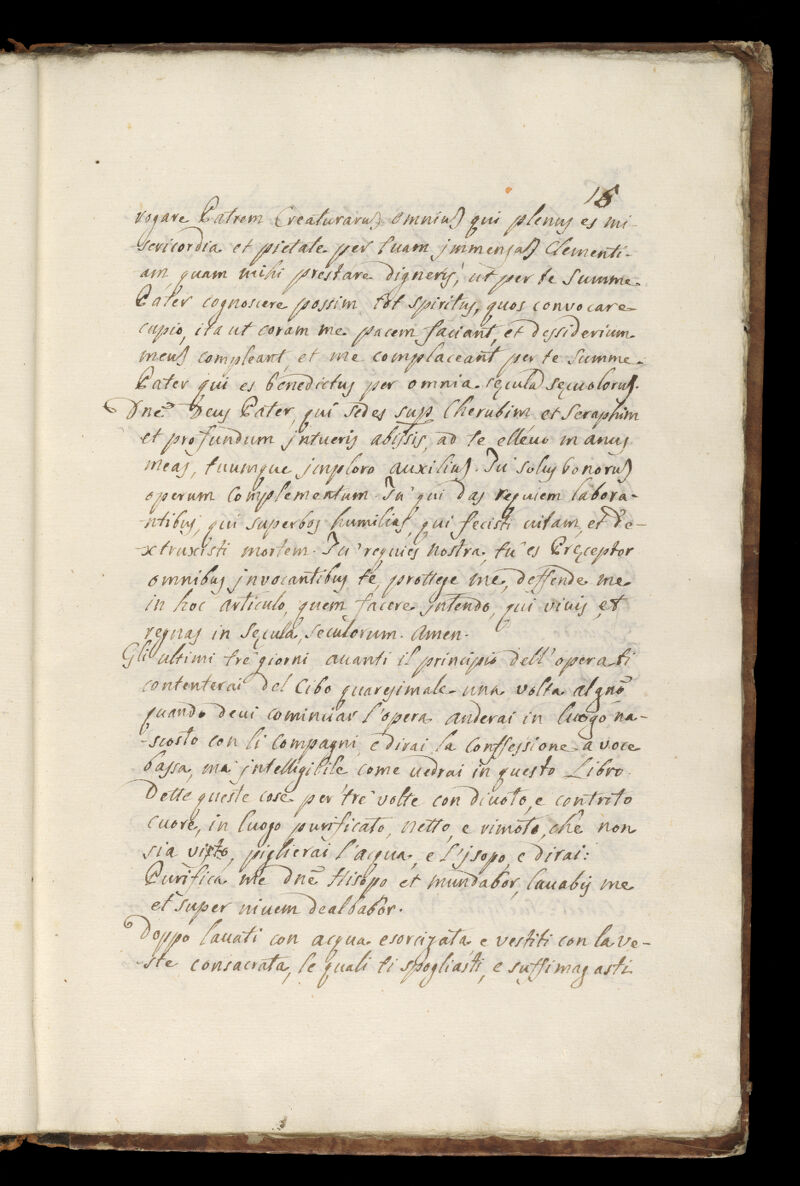 15
rogare Patrem Creaturarum omnium qui plenus es mi-
sericordia et pietate per tuam jmmensam Clementi-
am quam mihi prestare digneris, ut per te Summe
Pater cognoscere possim tot spiritus, quos convocare
cupio, ita ut coram me pacem faciant, et dessiderium
meum compleant, et me complaceant per te Summe
Pater qui es benedictus per omnia sęcula sęculorum.
Dnē Deus Pater, qui sedes sup Cherubim et Seraphim
et profundum jntueris abissis, ad te ellevo manus
meas, tuumque jmploro auxilium. Tu solus bonorum
operum Complementum. Tu qui das requiem labora-
-ntibus, qui superbos humilias, qui fecisti vitam, et de-
-xtruxisti mortem. Tu requies nostra, tu es Pręceptor
omnibus jnvocantibus te, protege me, deffende me
in hoc articulo, quem facere jntendo, qui vivis et
regnas in sęcula seculorum. Amen.
Gli ultimi tre giorni avanti il principio dell'opera ti
contenterai del Cibo quaresimale una volta al gnō
quando devi cominciar l'opera anderai in luogo na-
-scosto con li Compagni, e dirai la Conffessione a voce
bassa, ma jntelligibile come vedrai in questo Libro.
Dette queste cose per tre volte con divoto, e contrito
cuore, in luogo purificato, netto, e rimoto, che non
sia visto, piglierai l'acqua, e l'jsopo, e dirai:
Purifica me Dnē Hisopo et mundabor, lavabis me
et super nivem dealbabor.
Doppo lavati con acqua esorcizata e vestiti con la ve-
-ste consacrata, le quali ti spogliasti, e suffimagasti